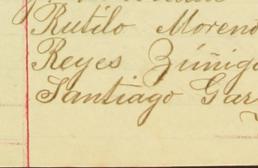 Rutilo Moreno
Reyes Zúñiga
Santiago Gar